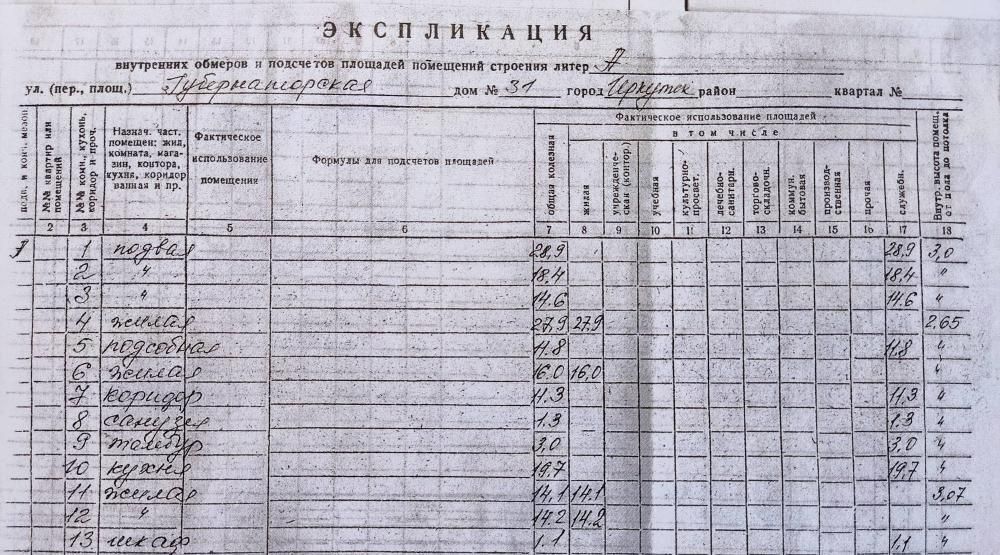 ЭКСПЛИКАЦИЯ
внутренних обмеров и подсчетов площадей помещений строения литер А
ул. (пер., площ.) Губернаторская дом № 31 город Иркутск район квартал №
подв. и конч. мезон.
№№ квартир или помещений
№№ комн., кухонь, коридор и проч.
Назнач. част. помещен: жил, комната, мага-зин, контора, кухня, коридор ванная и пр.
Фактическое использование помещения
Формулы для подсчетов площадей
Фактическое использование площадей
в том числе
общая полезная
жилая
учрежденче-ская (контор.)
учебная
культурно-просвет.
лечебно-санитарн.
торгово-складочн.
коммун. бытовая
производ-ственная
прочая
служебн.
Внутр. высота помещ. от пола до потолка
2 3 4 5 6 7 8 9 10 11 12 13 14 15 16 17 18
1 подвал 28,9 28,9 3,0
2 " 18,4 18,4 "
3 " 14.6 14.6 "
4 жилая 27,9 27,9 2.65
5 подсобная 11.8 11,8 "
6 жилая 16.0 16,0 "
7 коридор 11.3 11.3 "
8 санузел 1.3 1.3 "
9 тамбур 3,0 3,0 "
10 кухня 19,7 19,7 "
11 жилая 14,1 14.1 3,07
12 " 14.2 14.2 "
13 шкаф 1.1 1,1 "